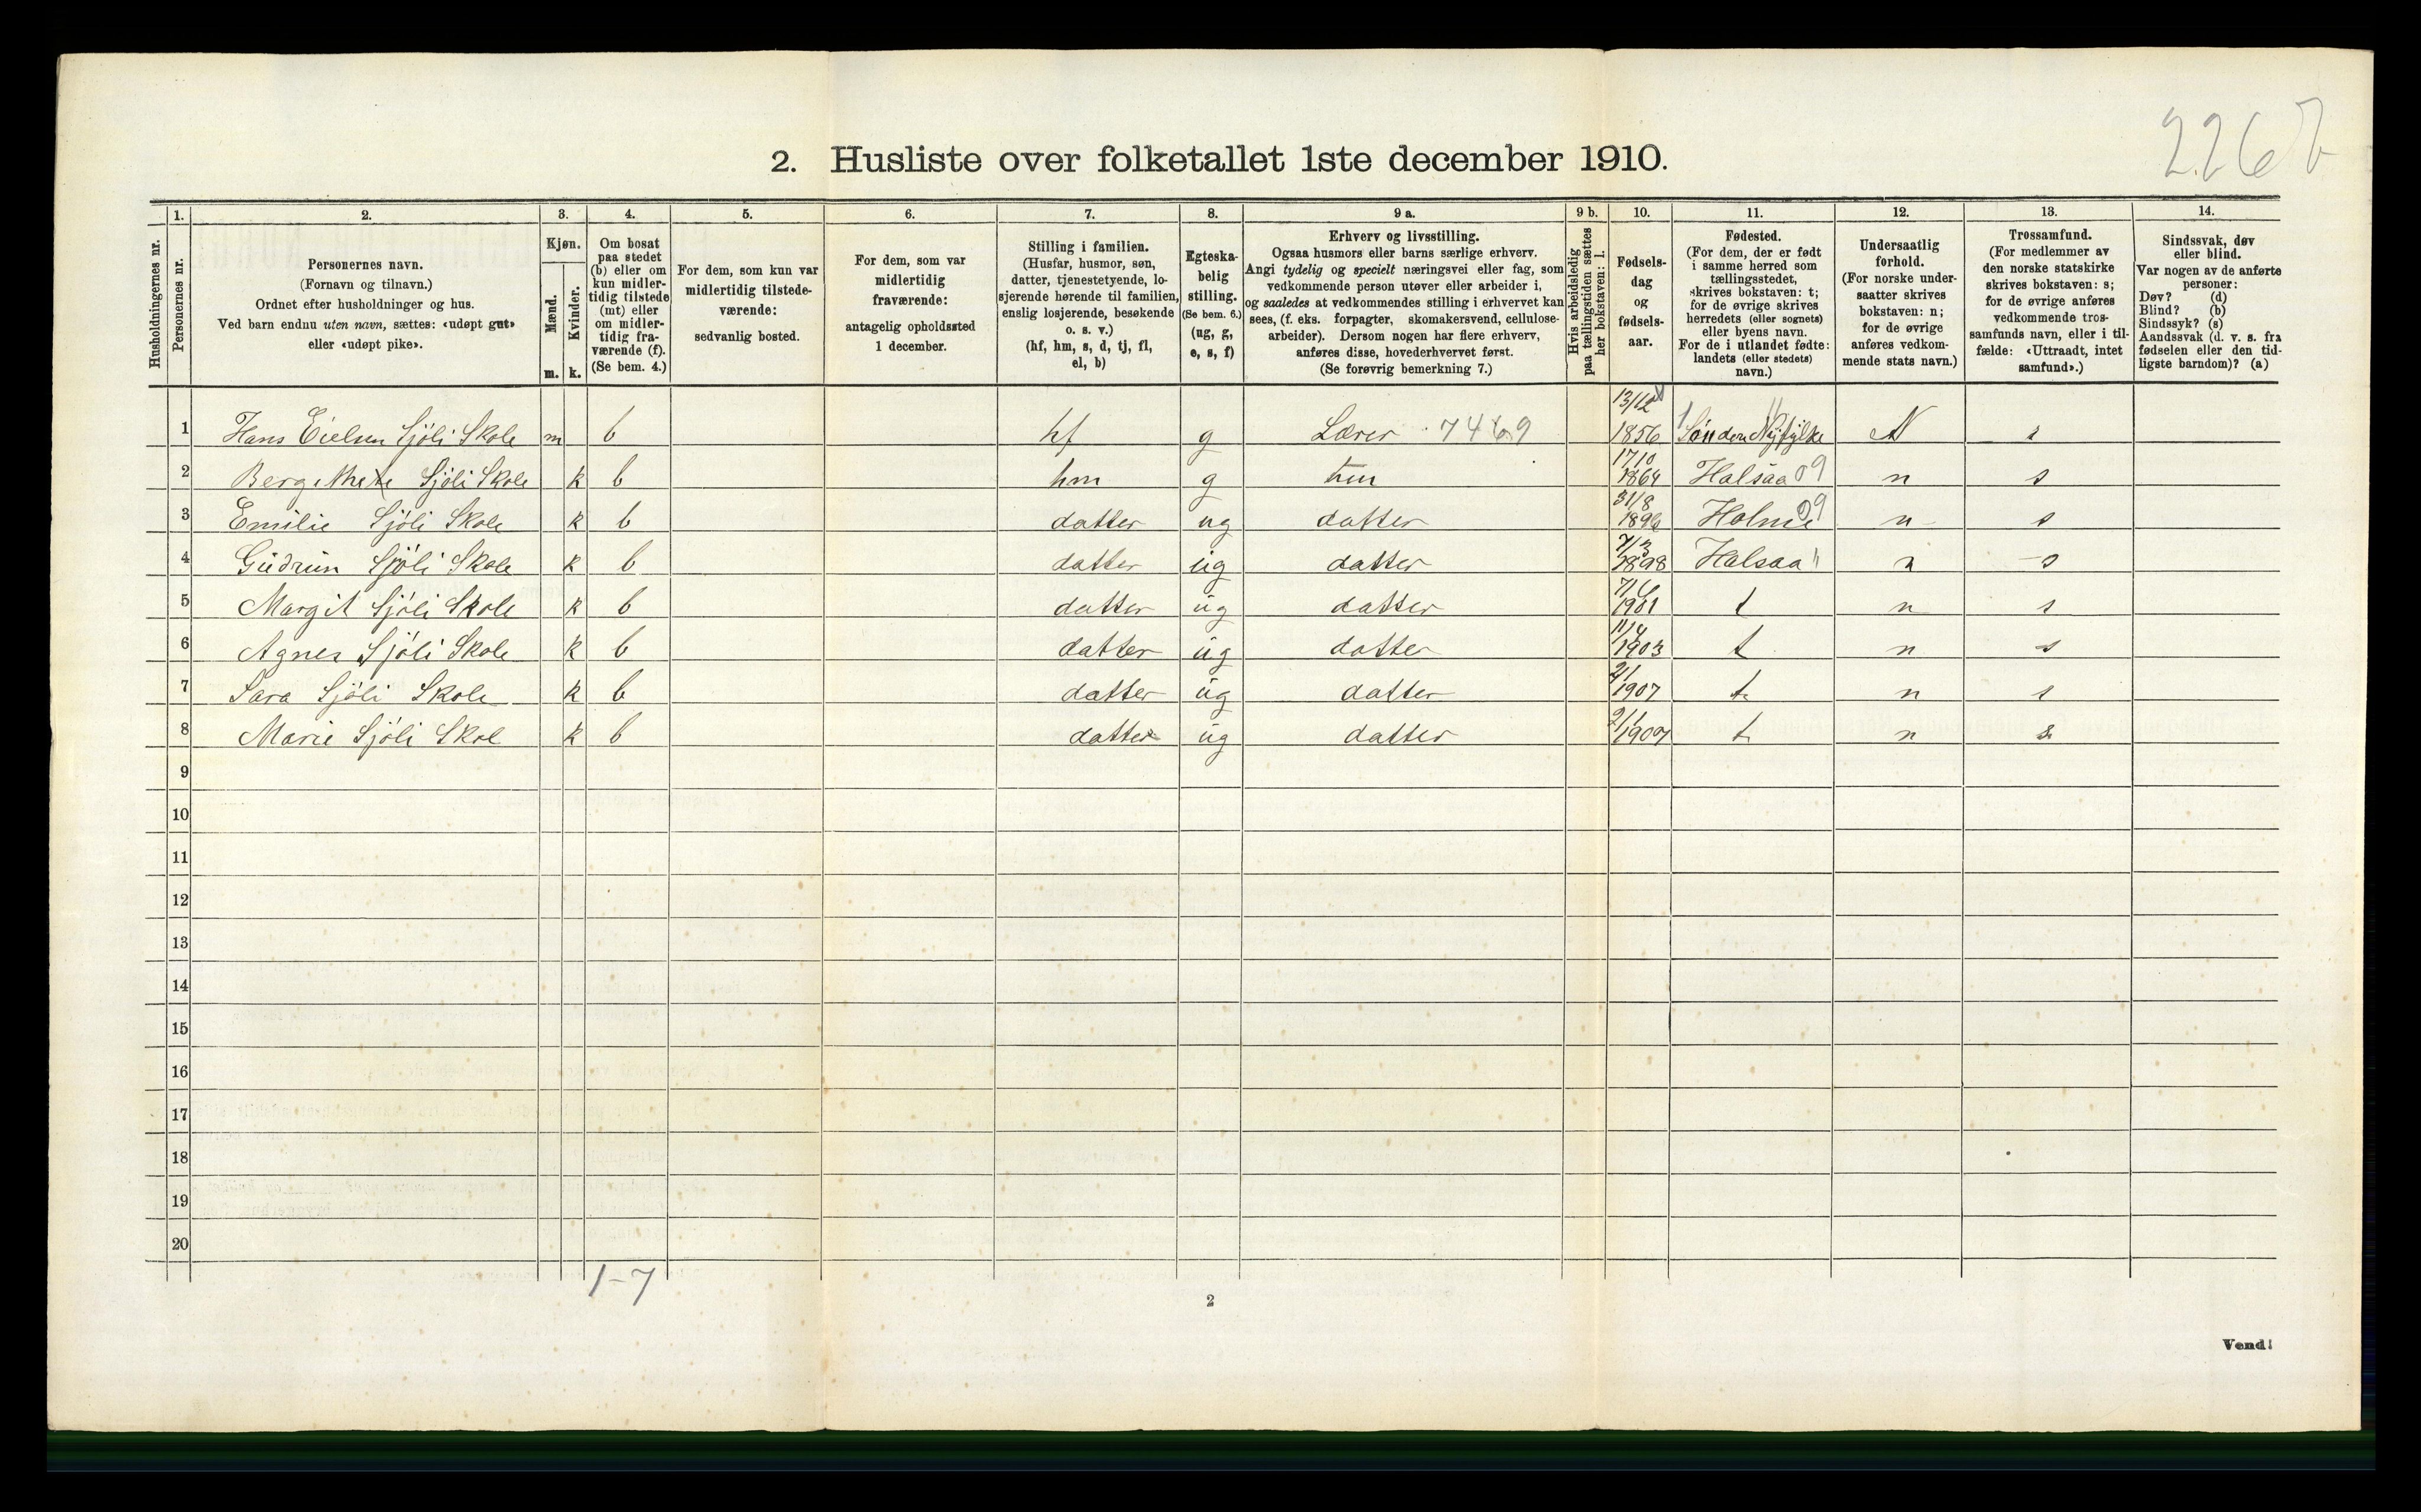 2267
2. Husliste over folketallet 1ste december 1910.
Husholdningernes nr.
1. Personernes nr.
2. Personernes navn.
(Fornavn og tilnavn.)
Ordnet efter husholdninger og hus.
Ved barn endnu uten navn, sættes: «udøpt gut»
eller «udøpt pike».
3. Kjøn.
Mænd. m.
Kvinder. k.
4. Om bosat
paa stedet
(b) eller om
kun midler-
tidig tilstede
(mt) eller
om midler-
tidig fra-
værende (f).
(Se bem. 4.)
5. For dem, som kun var
midlertidig tilstede-
værende:
sedvanlig bosted.
6. For dem, som var
midlertidig
fraværende:
antagelig opholdssted
1 december.
7. Stilling i familien.
(Husfar, husmor, søn,
datter, tjenestetyende, lo-
sjerende hørende til familien,
enslig losjerende, besøkende
o. s. v.)
(hf, hm, s, d, tj, fl,
el, b)
8. Egteska-
belig
stilling.
(Se bem. 6.)
(ug, g,
e, s, f)
9 a. Erhverv og livsstilling.
Ogsaa husmors eller barns særlige erhverv.
Angi tydelig og specielt næringsvei eller fag, som
vedkommende person utøver eller arbeider i,
og saaledes at vedkommendes stilling i erhvervet kan
sees, (f. eks. forpagter, skomakersvend, cellulose-
arbeider). Dersom nogen har flere erhverv,
anføres disse, hovederhvervet først.
(Se forøvrig bemerkning 7.)
9 b. Hvis arbeidsledig
paa tællingstiden sættes
her bokstaven: l.
10. Fødsels-
dag
og
fødsels-
aar.
11. Fødested.
(For dem, der er født
i samme herred som
tællingsstedet,
skrives bokstaven: t;
for de øvrige skrives
herredets (eller sognets)
eller byens navn.
For de i utlandet fødte:
landets (eller stedets)
navn.)
12. Undersaatlig
forhold.
(For norske under-
saatter skrives
bokstaven: n;
for de øvrige
anføres vedkom-
mende stats navn.)
13. Trossamfund.
(For medlemmer av
den norske statskirke
skrives bokstaven: s;
for de øvrige anføres
vedkommende tros-
samfunds navn, eller i til-
fælde: «Uttraadt, intet
samfund».)
14. Sindssvak, døv
eller blind.
Var nogen av de anførte
personer:
Døv? (d)
Blind? (b)
Sindssyk? (s)
Aandssvak (d. v. s. fra
fødselen eller den tid-
ligste barndom)? (a)
1 Hans Eielsen Sjöli Skole m b hf g Lærer 7469 13/12 1856 N s
2 Sjöli Skole k b hm g 17/10 1864 Halsaa 09 n s
3 Emilie Sjöli Skole k b datter ug datter 31/8 1896 Holme 09 n s
4 Gudrun Sjöli Skole k b datter ug datter 7/3 1898 Halsaa " n s
5 Margit Sjöli Skole k b datter ug datter 7/6 1901 t n s
6 Agnes Sjöli Skole k b datter ug datter 11/4 1903 t n s
7 Sara Sjöli Skole k b datter ug datter 1907 t n s
8 Marie Sjöli Skol k b datter ug datter 2/1 1907 t n s
9
10
11
12
13
14
15
16
17
18
19
20
1-7
2
Vend!